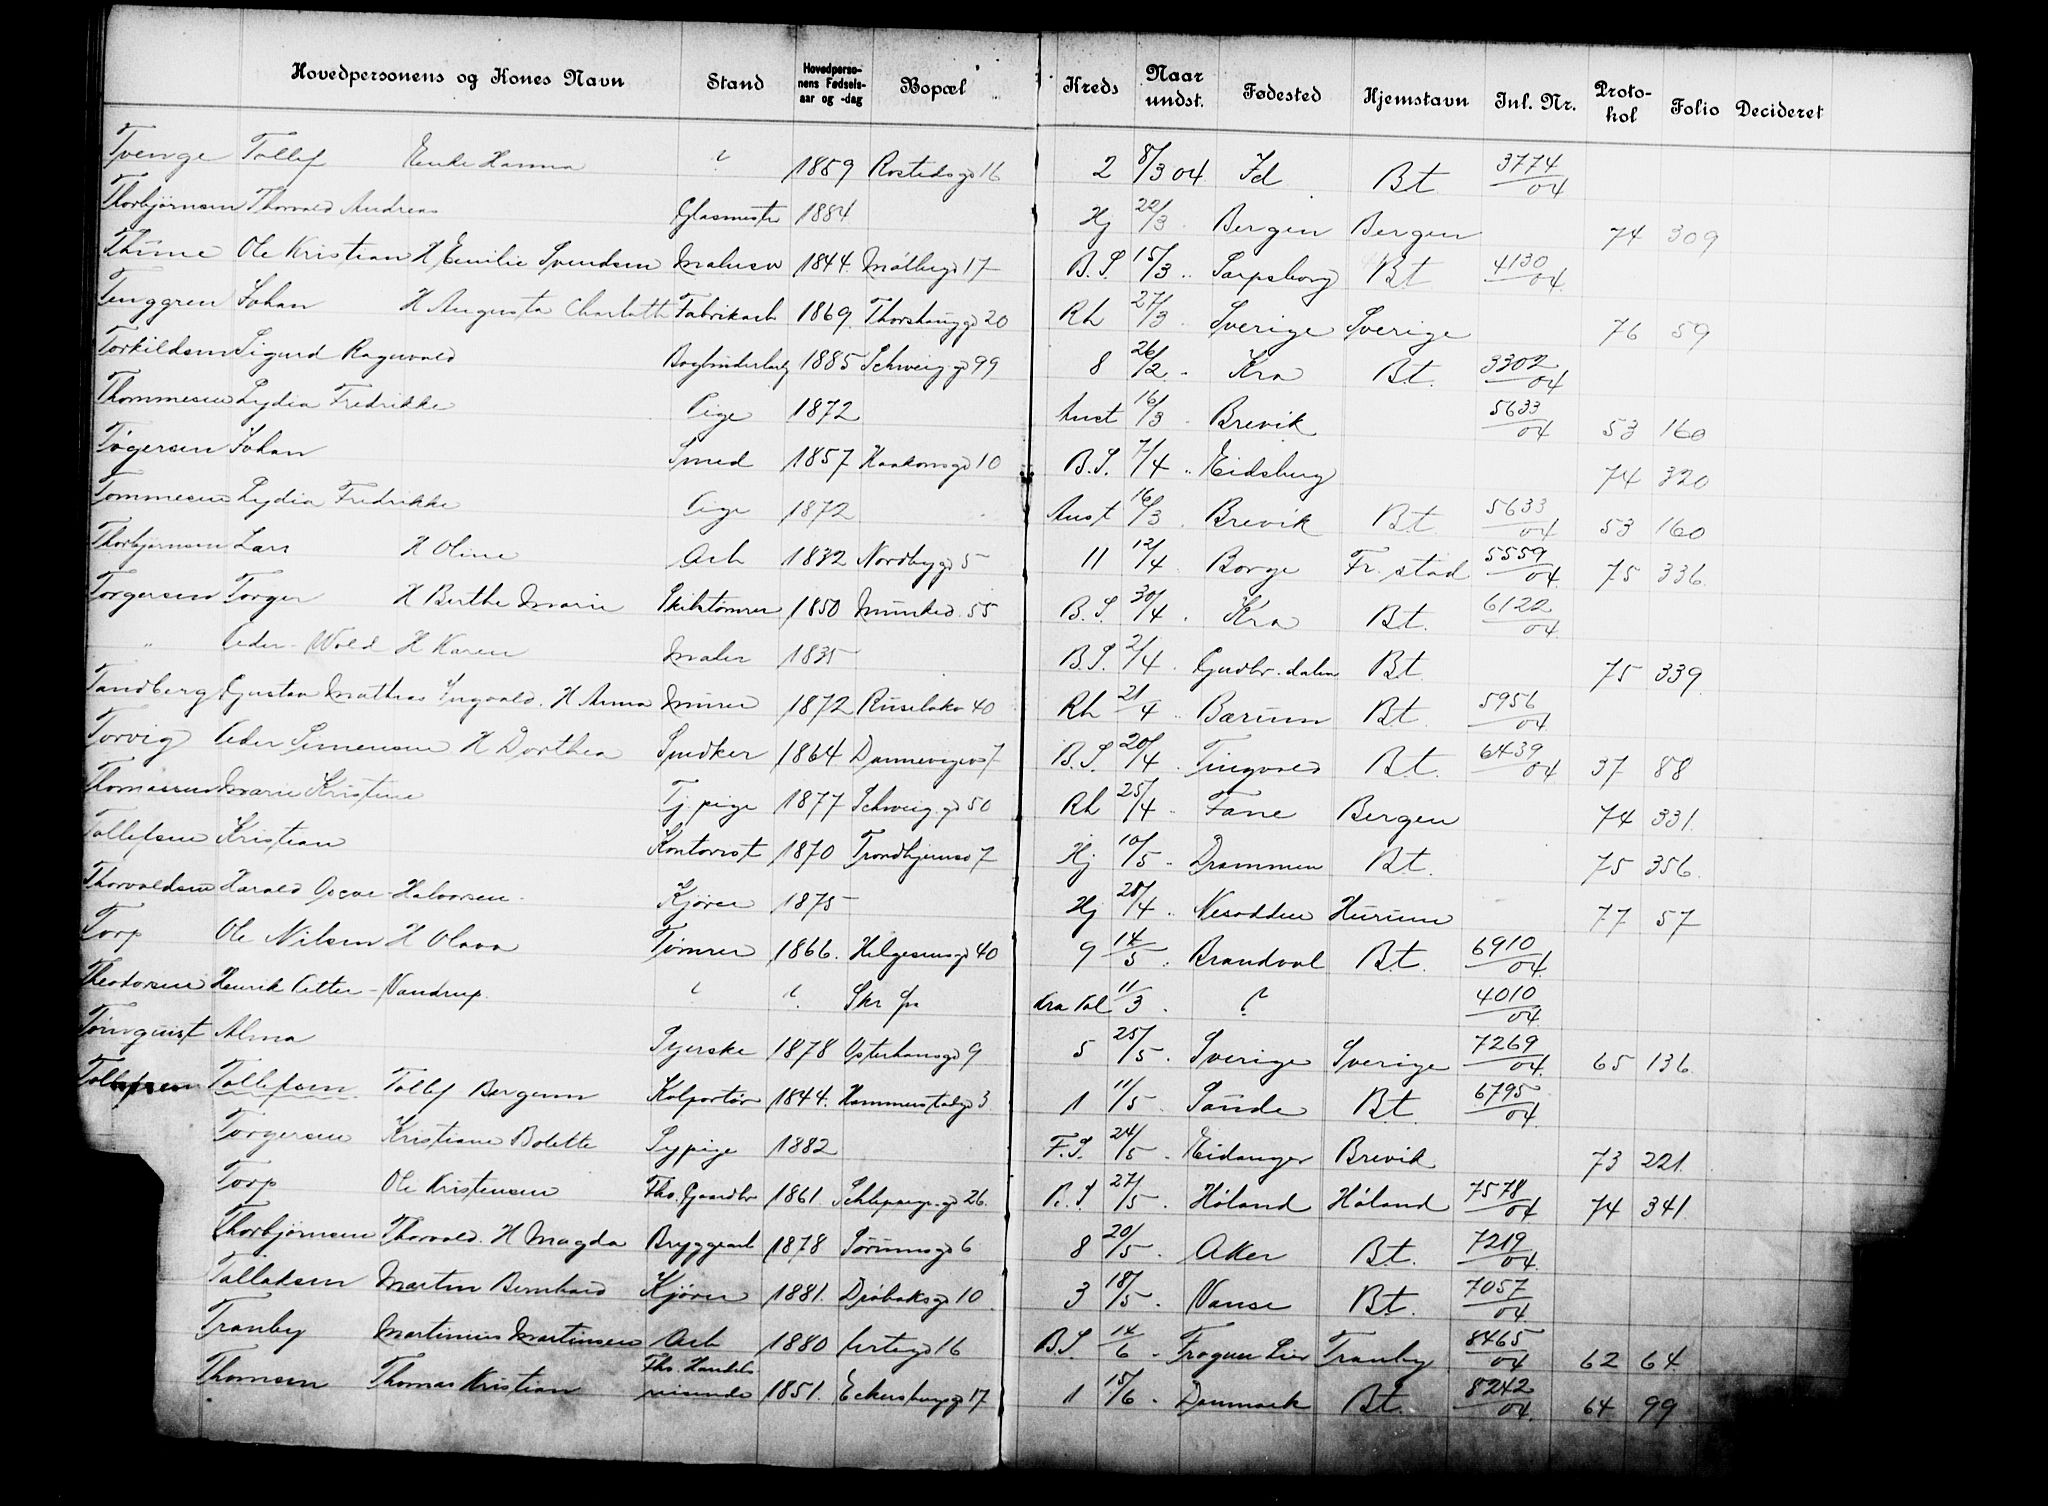 Hovedpersonens og Kones Navn Stand Hovedperso-nens Fødsels-aar og -dag Bopæl Kreds Naar undst. Fødested Hjemstavn Inl. Nr. Proto-kol Folio Decideret
Tvenge Tollef Enke Hanna ? 1859 Rostedsgd 16 2 8/3 04 Id Bt. 3774/04
Thorbjørnsen Thorvald Andreas Glasmester 1884 Hj 22/3 Bergen Bergen 74 309
Thime Ole Kristian H Emilie Svendsen 1844 17 B.S. 15/3 " Sarpsborg Bt 4130/04
Tenggren Johan H Augusta Charlotte Fabrikarb 1869 Thorshauggd 20 Rh 27/3 Sverige Sverige 76 59
Torkildsen Sigurd Ragnvald 1885 Schweiggd 99 8 26/2 " Kra Bt. 3302/04
Thommesen Lydia Fredrikke Pige 1872 Aust 16/3 Brevik 5633/04 53 160
Tøgersen Johan Smed 1857 Haakonsgd 10 B.S. 7/4 " Eidsberg 74 320
Tommesen Lydia Fredrikke Pige 1872 Aust 16/3 Brevik Bt 5633/04 53 160
Thorbjørnsen Lars H Oline Arb 1832 Nordbygd 5 11 12/4 Borge Fr. stad 5559/04 75 336
Torgersen Torger H Berthe Marie Skibstømrer 1850 Munked. 55 B.S. 30/4 Kra Bt. 6122/04
" Peder Wold H Karen Maler 1835 B.S. 2/4 Gudbr. dalen Bt 75 339
Tandberg Gustav Mathias Ingvald. H Anna Murer 1872 Ruseløkv 40 Rh 21/4 " Bærum Bt. 5956/04
Torvig Peder Simensen H Dorthea Snedker 1864 Dannevigsv 7 B.S. 20/4 Tingvold Bt. 6439/04 37 88
Thomassen Marie Kristine Tj. pige 1877 Schweiggd 50 Rh 25/4 Fane Bergen 74 331
Tollefsen Kristian Kontorist 1870 Trondhjemsv 7 Hj 10/5 Drammen Bt. 75 356
Thorvaldsen Harald Oscar Halvorsen Kjører 1875 Hj 28/4 " Nesodden Hurum 77 57
Torp Ole Nilsen H Olava Tømrer 1866. Helgesensgd 40 9 14/5 Brandval Bt. 6910/04
Theodorsen Henrik Petter Vandrup ? ? Kra Pol 11/3 ? 4010/04
Tørnquist Alma Syerske 1878 Osterhausgd 9 5 25/5 Sverige Sverige 7269/04 65 136
Tollefsen Tollefsen Tollef Bergum Kolportør 1844. Hammerstadgd 3 1 11/5 Sande Bt. 6795/04
Torgersen Kristiane Bolette Sypige 1882 F.S. 24/5 Eidanger Brevik 73 221
Torp Ole Kristensen Fhv. Gaardbr 1861. Schleppegr.gd 26 B.S 27/5 Høland Høland 7578/04 74 341
Thorbjørnsen Thorvald. H Magda Bryggearb 1878 Sørumsgd 6 8 20/5 Aker Bt. 7219/04
Tallaksen Martin Bernhard Kjører 1881. Drøbaksgd 10 3 18/5 Vanse Bt. 7057/04
Tranby Martinius Martinsen Arb 1880 Urtegd 16 B.S 14/6 Frogner Lier Tranby 8465/04 62 64
Thomsen Thomas Kristian Fhv. Handelsreisende 1851. Eckersbergsgd 17 1 15/6 Danmark Bt. 8242/04 64 99